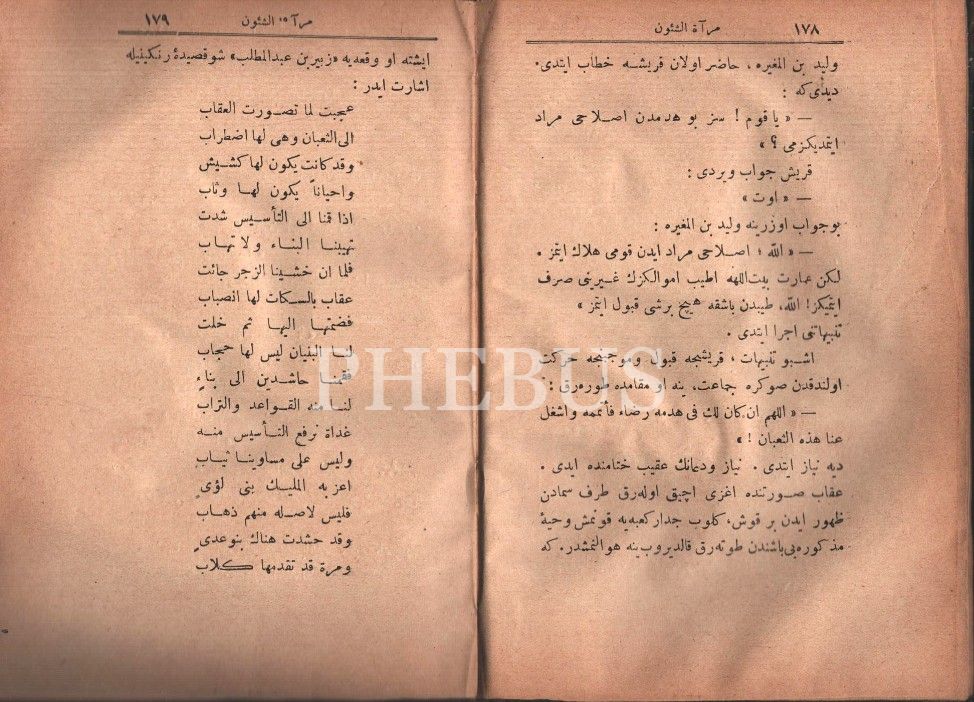 مرآة الشئون ١٧٨
وليد بن المغيره ، حاضر اولان قريشه خطاب ايتدى.
ديدى كه :
— « يا قوم ! سز بو هدمدن اصلاحى مراد
ايتمديكزمى ؟ »
قريش جواب ويردى :
— « اوت »
بوجواب اوزرينه وليد بن المغيره :
— « الله ؛ اصلاحى مراد ايدن قومى هلاك ايتمز .
لكن عمارت بيت اللهه اطيب اموالكزك غيرينى صرف
ايتميكز! الله، طيبدن باشقه هيچ برشى قبول ايتمز »
تنبيهاتنى اجرا ايتدى .
اشبو تنبيهات ، قريشجه قبول وموجبنجه حركت
اولندقدن صوكره جماعت، ينه او مقامده طوره رق :
— « اللهم ان كان لك فى هدمه رضاء فأتممه واشغل
عنا هذه الثعبان ! »
ديه نياز ايتدى . نياز ودعانك عقيب ختامنده ايدى .
عقاب صورتنده اغزى اچيق اوله رق طرف سمادن
ظهور ايدن بر قوش، كلوب جدار كعبه يه قونمش وحيهٔ
مذكوره يى باشندن طوته رق قالديروب ينه هوالنمشدر. كه
مرآة الشئون ١٧٩
ايشته او وقعه يه « زبير بن عبدالمطلب » شو قصيدهٔ رنكينيله
اشارت ايدر :
عجبت لما تصورت العقاب
الى الثعبان وهى لها اضطراب
وقد كانت يكون لها كشيش
واحياناً يكون لها وثاب
اذا قمنا الى التأسيس شدت
تهيبنا البناء ولا تهاب
فلما ان خشينا الزجر جائت
عقاب بالسكات لها انصباب
فضمتها اليها ثم خلت
لنا البنيان ليس لها حجاب
فقمنا حاشدين الى بناءٍ
لنا منه القواعد والتراب
غداة نرفع التأسيس منه
وليس على مساوينا ثياب
اعز به المليك بنى لؤىٍ
فليس لاصله منهم ذهاب
وقد حشدت هناك بنوعدى
ومرة قد تقدمها كلاب
PHEBUS